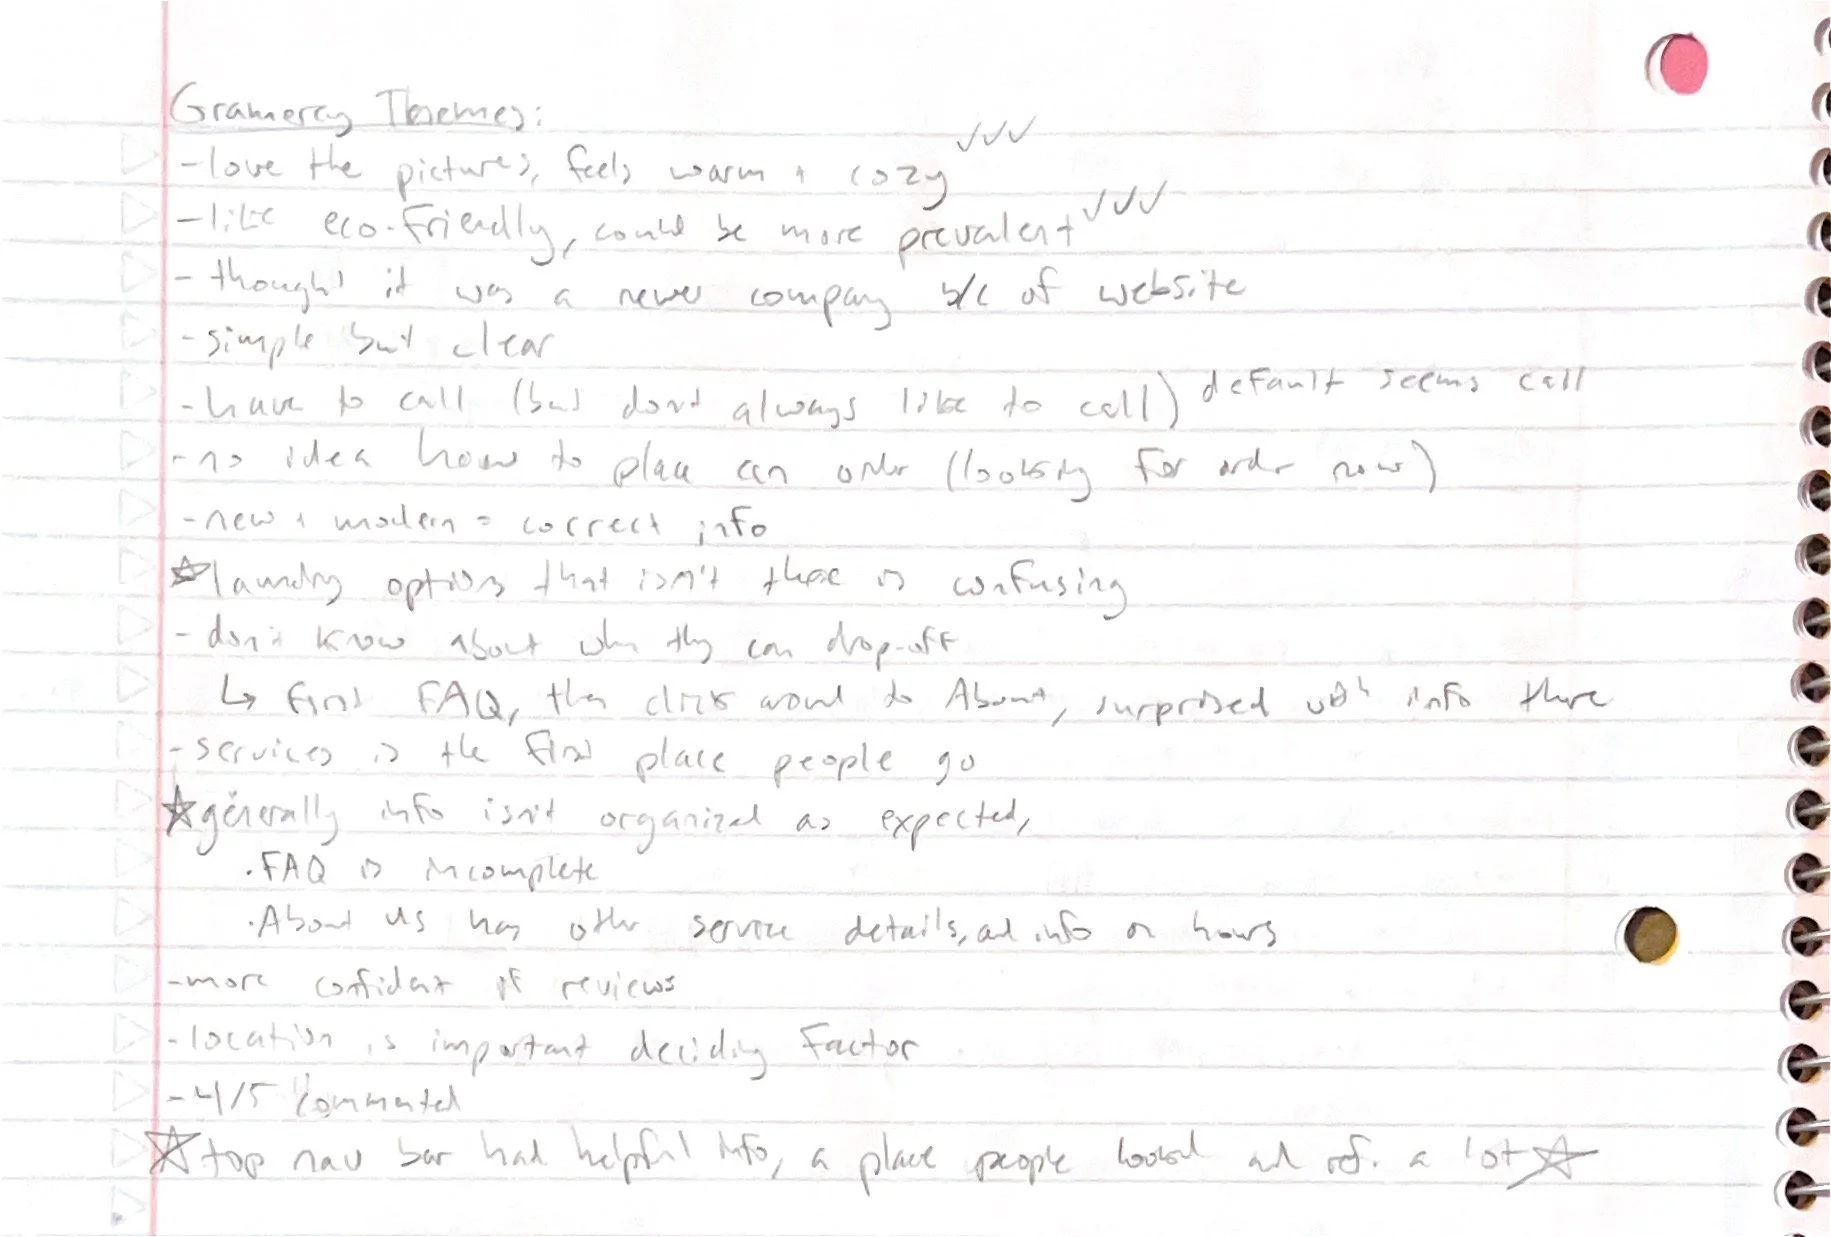 Gramercy Themes:
- love the pictures, feels warm + cozy ✓✓✓
- like eco-friendly, could be more prevalent ✓✓✓
- thought it was a newer company b/c of website
- simple but clear
- have to call (but don't always like to call) default seems call
- no idea how to place an order (looking for order now)
- new + modern = correct info
☆ laundry options that isn't there is confusing
- don't know about when they can drop-off
↳ first FAQ, then click around to About, surprised with info there
- services is the first place people go
☆ generally info isn't organized as expected,
· FAQ is incomplete
· About us has other service details, and info on hours
- more confident if reviews
- location is important deciding factor
- 4/5 commented
☆ top nav bar had helpful info, a place people looked and ref. a lot ☆